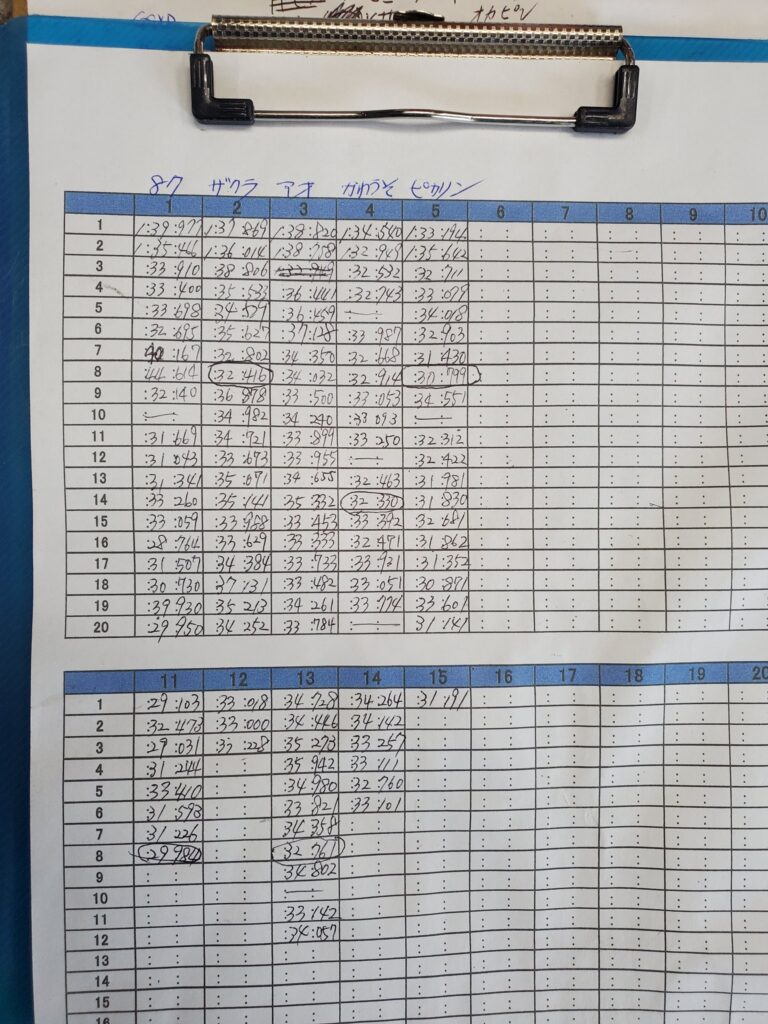 オカピン
87 ザクラ アオ かわうそ ピカリン
1 2 3 4 5 6 7 8 9 10
1 1:39:977 1:37 869 1:38:820 1:34:540 1:33:194
2 1:35:466 1:36:014 1:38:758 1:32:949 1:35:642
3 :33:910 :38:806 :32:532 :32:711
4 :33:400 :35:533 :36:441 :32:743 :33:079
5 :33:698 :36:459 :34:018
6 :32:695 :35:627 :37:128 :33:987 :32:903
7 :167 :32:802 :34:350 :32:668 :31:430
8 :44:614 :32:416 :34:032 :32:914 :30:799
9 :32:140 :36:878 :33:500 :33:053 :34:551
10 :34:982 :34 240 :33 093
11 :31:669 34:721 :33:899 :33 250 :32:312
12 :31:043 :33:673 :33:955 :32:422
13 :31:341 :35:071 34:655 :32:463 :31:981
14 :33 260 :35:141 :35:332 :32:330 :31:830
15 :33:059 :33:958 :33:453 :33:392 :32:681
16 28:764 :33:629 :33:333 :32:471 :31:862
17 :31:507 34:384 :33:733 :33:921 :31:352
18 :30:730 37:131 :33:482 :33:051 :30:891
19 :39:930 35 213 :34 261 :33:774 :33:601
20 :29:950 34 252 :33:784 31:141
11 12 13 14 15 16 17 18 19 20
1 :29:103 :33:018 34:728 :34:264 :31:191
2 32:473 :33:000 :34:446 34:142
3 29:031 :33:228 35 273 33 257
4 31 244 35:942 33:111
5 :33:410 :34:980 32:760
6 31:593 33:821 :33:101
7 31:226 34:358
8 :29:984 32:761
9 34:802
10
11 :33:142
12 :34:057
13
14
15
16